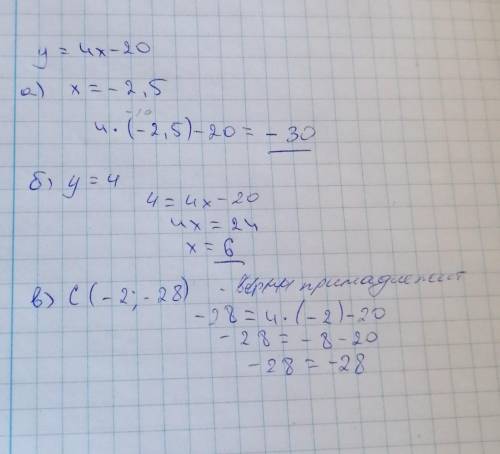 y = 4x-20
а) x = -2,5
-10
4·(-2,5)-20 = -30
б) y = 4
4 = 4x-20
4x = 24
x = 6
в) C(-2;-28) - принадлежит
-28 = 4·(-2)-20
-28 = -8-20
-28 = -28